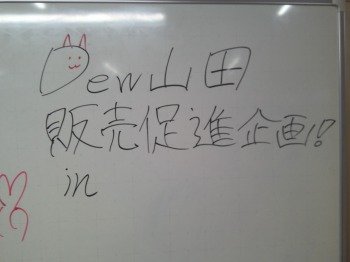 Dew山田
販売促進企画!!
in